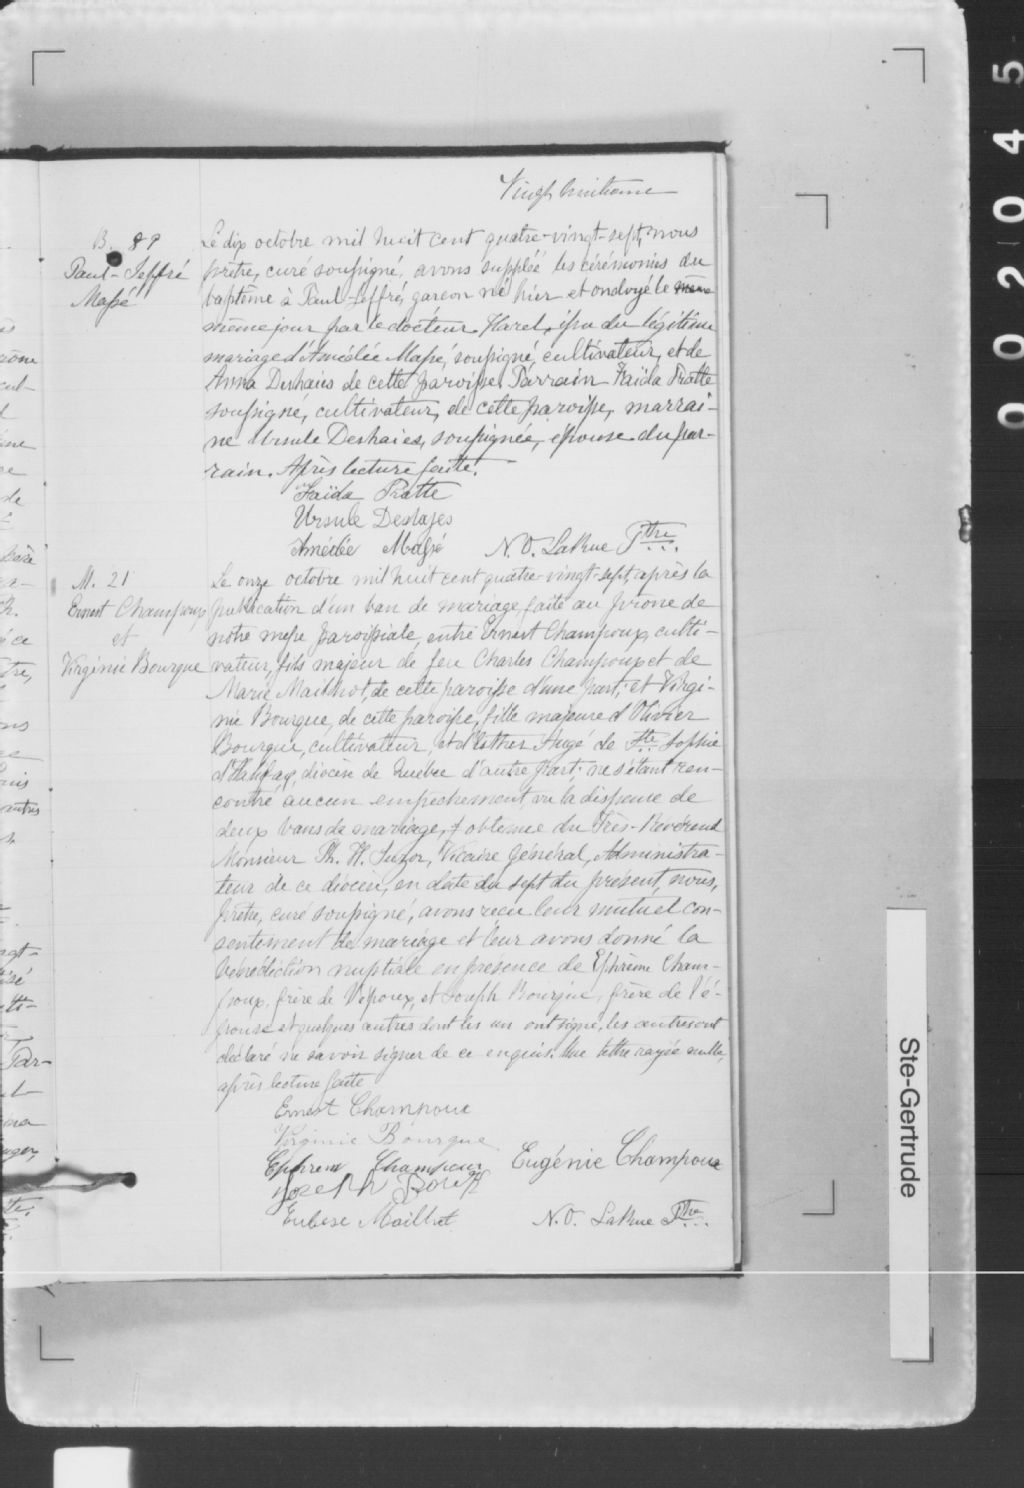 Vingt huitième
B. 89
Paul-Jeffré
Massé
Le dix octobre mil huit cent quatre-vingt-sept, nous
prêtre, curé soussigné, avons suppléé les cérémonies du
baptême à Paul-Jeffré, garçon né hier et ondoyé le même
même jour par le docteur Harel, issu du légitime
mariage d'Amédée Massé, soussigné, cultivateur, et de
Anna Deshaies de cette paroisse. Parrain Zaïda Pratte
soussigné, cultivateur, de cette paroisse, marrai-
ne Ursule Deshaies, soussignée, épouse du par-
rain. Après lecture faite.
Zaïda Pratte
Ursule Deshayes
Amédée Massé N. O. LaRue Ptre
M. 21
Ernest Champoux
et
Virginie Bourque
Le onze octobre mil huit cent quatre-vingt-sept, après la
publication d'un ban de mariage, faite au prône de
notre messe paroissiale, entre Ernest Champoux, culti-
vateur, fils majeur de feu Charles Champoux et de
Marie Mailhot, de cette paroisse d'une part; et Virgi-
nie Bourque, de cette paroisse, fille majeure d'Olivier
Bourque, cultivateur, et d'Esther Augé de Ste Sophie
d'Halifax, diocèse de Québec d'autre part; ne s'étant ren-
contré aucun empêchement, vu la dispense de
deux bans de mariage, obtenue du Très-Révérend
Monsieur Th. H. Suzor, Vicaire Général, Administra-
teur de ce diocèse, en date du sept du présent, nous,
prêtre, curé soussigné, avons reçu leur mutuel con-
sentement de mariage et leur avons donné la
bénédiction nuptiale en présence de Ephrème Cham-
poux, frère de l'époux, et Joseph Bourque, frère de l'é-
pouse et quelques autres dont les uns ont signé, les autres ont
déclaré ne savoir signer de ce enquis. Une lettre rayée nulle,
après lecture faite
Ernest Champoux
Virginie Bourque
Ephrem Champoux Eugénie Champoux
Joseph
Mailhot N. O. LaRue Ptre
Ste-Gertrude
002045